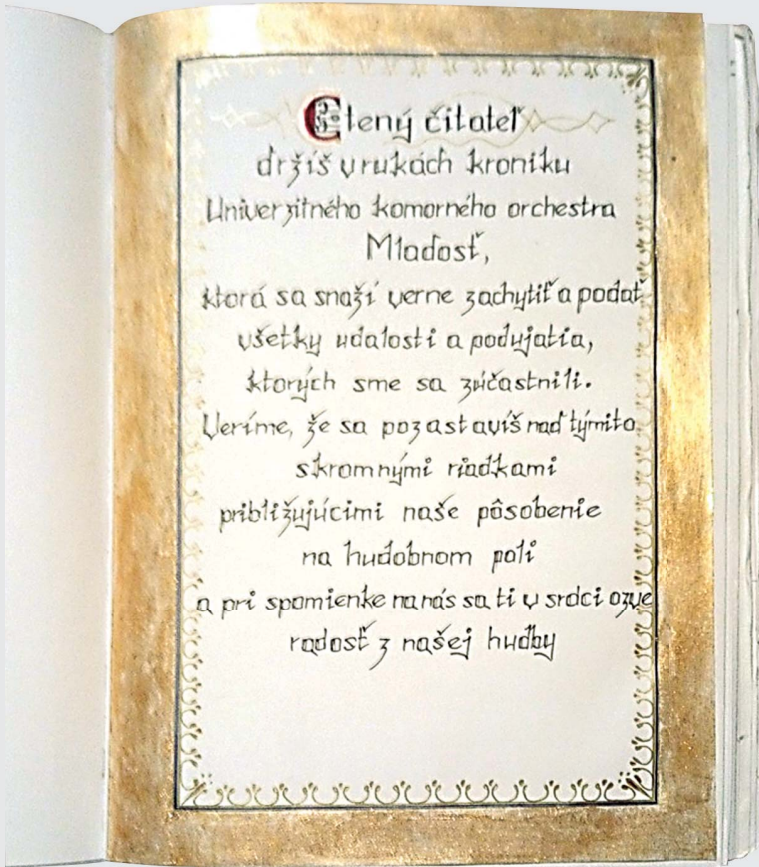 Ctený čitateľ
držíš v rukách kroniku
Univerzitného komorného orchestra
Mladosť,
ktorá sa snaží verne zachytiť a podať
všetky udalosti a podujatia,
ktorých sme sa zúčastnili.
Veríme, že sa pozastavíš nad týmito
skromnými riadkami
približujúcimi naše pôsobenie
na hudobnom poli
a pri spomienke na nás sa ti v srdci ozve
radosť z našej hudby